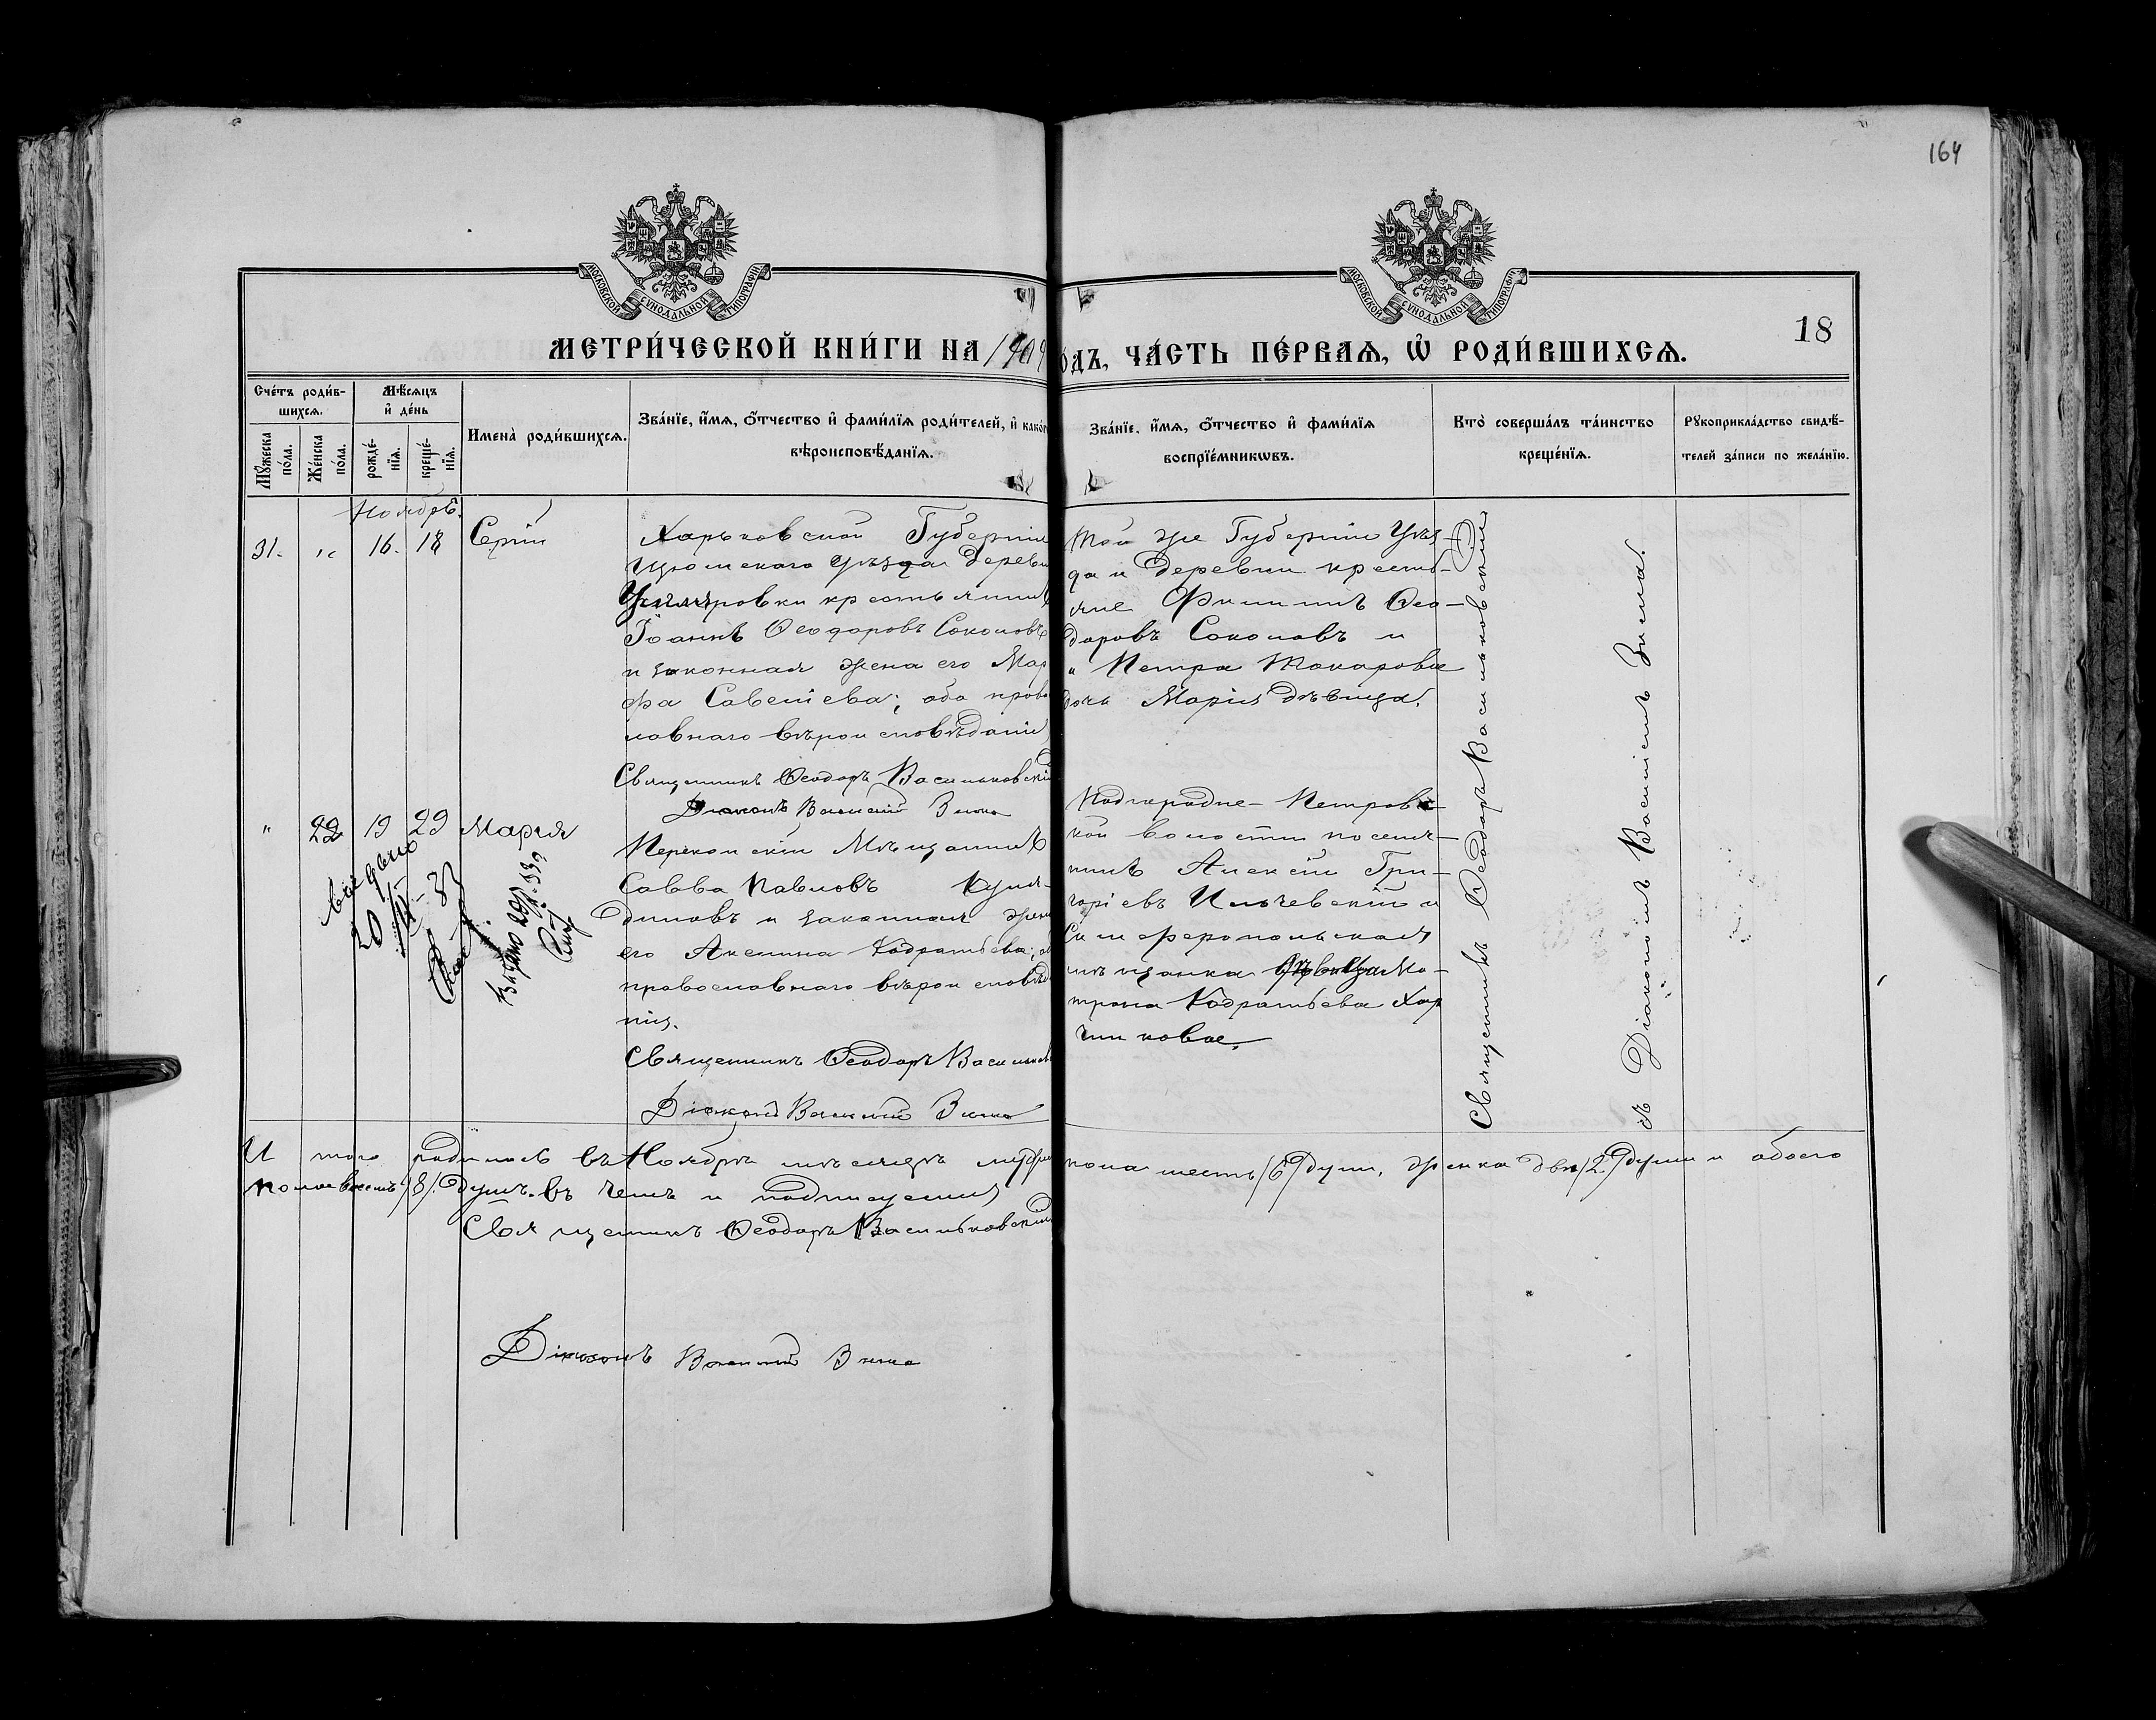 164
МОСКОВСКОЙ СѴНОДАЛЬНОЙ ТИПОГРАФІИ
МОСКОВСКОЙ СѴНОДАЛЬНОЙ ТИПОГРАФІИ
18
МЕТРИ́ЧЕСКОЙ КНИ́ГИ НА 1909
ОДЪ, ЧА́СТЬ ПЕ́РВАѦ, Ѡ РОДИ́ВШИХСѦ.
Сче́тъ роди́в-
шихсѧ.
Мꙋ́жеска по́ла.
Же́нска по́ла.
Мѣ́сѧцъ
и҆ де́нь
рожде́-
нїѧ.
креще́-
нїѧ.
Имена̀ роди́вшихсѧ.
Зва́нїе, и҆́мѧ, ѻ҆́тчество и҆ фами́лїѧ роди́телей, и҆ како́г
вѣроисповѣ́данїѧ.
Зва́нїе, и҆́мѧ, ѻ҆́тчество и҆ фами́лїѧ
воспрїе́мникѡвъ.
Кто̀ соверша́лъ та́инство
креще́нїѧ.
Рꙋкоприкла́дство свидѣ́-
телей за́писи по жела́нїю.
Ноябрь.
31. " 16. 18 Сергій
Харьковской Губерніи
Изюмскаго уѣзда деревн
крестьянинъ
Іоаннъ Ѳеодоровъ Соколовъ
и законная жена его Мар
фа Савельева; оба право
славнаго вѣроисповѣданія
Священникъ Ѳеодоръ Васильковскій
Діаконъ Василій Зима
Той же Губерніи Уѣз-
да и деревни кресть-
яне Филиппъ Ѳео-
доровъ Соколовъ и
и Петра Токарова
дочь Марія дѣвица.
" 22 19 29 Марія
выдано
20/III-33
Выдано
Перекопскій Мѣщанинъ
Савва Павловъ
диновъ и законная жена
его Аксинья Кодратьева; об
православнаго вѣроисповѣда
нія.
Священникъ Ѳеодоръ Васильков
Діаконъ Василій Зима
Подгородне-Петровс-
кой волости поселя-
нинъ Алексѣй Гри-
горіевъ Ильчевскій и
Симферопольская
мѣщанка дѣвица Ма-
трона Кодратьева Хар
чикова.
Священникъ Ѳеодоръ Васильковскій
съ Діакономъ Василіемъ Зима.
И того родилось въ Ноябрѣ мѣсяцѣ мужск
пола шесть /6/ душ, женска двѣ /2/ души и обоего
пола восемь /8/ душъ. въ чемъ и подписуемся
Священникъ Ѳеодоръ Васильковскій
Діаконъ Василій Зима